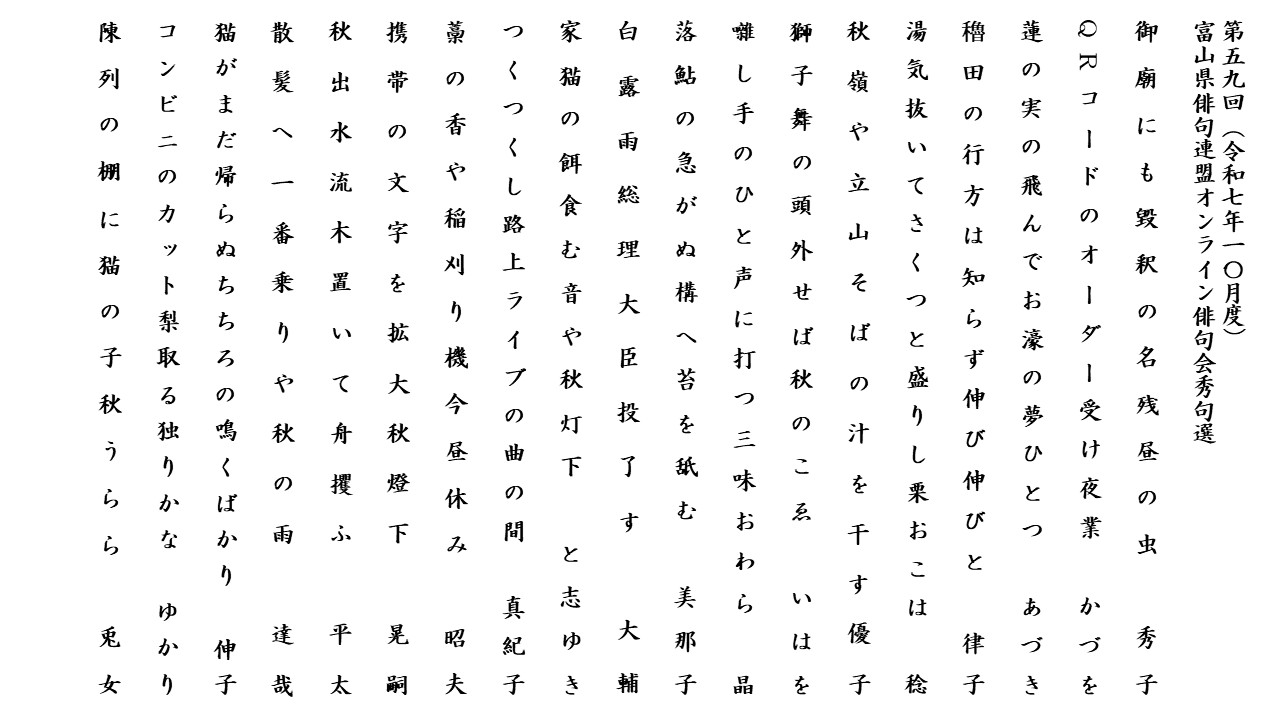 第五九回（令和七年一〇月度）
富山県俳句連盟オンライン俳句会秀句選
御廟にも毀釈の名残昼の虫　秀子
ＱＲコードのオーダー受け夜業　かづを
蓮の実の飛んでお濠の夢ひとつ　あづき
穭田の行方は知らず伸び伸びと　律子
湯気抜いてさくつと盛りし栗おこは　稔
秋嶺や立山そばの汁を干す　優子
獅子舞の頭外せば秋のこゑ　いはを
囃し手のひと声に打つ三味おわら　晶
落鮎の急がぬ構へ苔を舐む　美那子
白露雨総理大臣投了す　大輔
家猫の餌食む音や秋灯下　と志ゆき
つくつくし路上ライブの曲の間　真紀子
藁の香や稲刈り機今昼休み　昭夫
携帯の文字を拡大秋燈下　晃嗣
秋出水流木置いて舟攫ふ　平太
散髪へ一番乗りや秋の雨　達哉
猫がまだ帰らぬちちろの鳴くばかり　伸子
コンビニのカット梨取る独りかな　ゆかり
陳列の棚に猫の子秋うらら　兎女